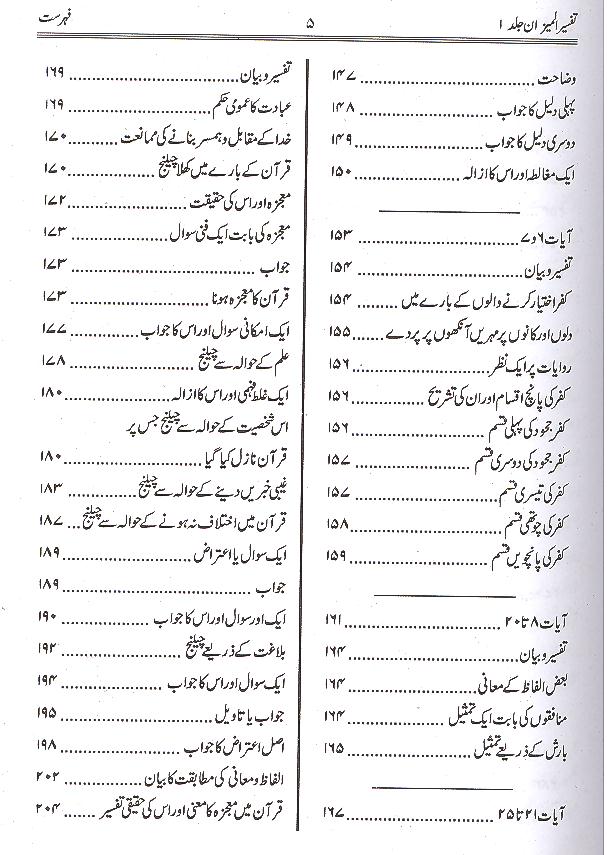 تفسیر المیزان جلد ۱
۵
فہرست
وضاحت ........ ۱۴۷
پہلی دلیل کا جواب ........ ۱۴۸
دوسری دلیل کا جواب ........ ۱۴۹
ایک مغالطہ اور اس کا ازالہ ........ ۱۵۰
آیات ۶ و ۷ ........ ۱۵۳
تفسیر و بیان ........ ۱۵۴
کفر اختیار کرنے والوں کے بارے میں ........ ۱۵۴
دلوں اور کانوں پر مہریں آنکھوں پر پردے ........ ۱۵۵
روایات پر ایک نظر ........ ۱۵۶
کفر کی پانچ اقسام اور ان کی تشریح ........ ۱۵۶
کفر جحود کی پہلی قسم ........ ۱۵۶
کفر جحود کی دوسری قسم ........ ۱۵۷
کفر کی تیسری قسم ........ ۱۵۷
کفر کی چوتھی قسم ........ ۱۵۸
کفر کی پانچویں قسم ........ ۱۵۹
آیات ۸ تا ۲۰ ........ ۱۶۱
تفسیر و بیان ........ ۱۶۴
بعض الفاظ کے معانی ........ ۱۶۴
منافقوں کی بابت ایک تمثیل ........ ۱۶۴
بارش کے ذریعے تمثیل ........ ۱۶۵
آیات ۲۱ تا ۲۵ ........ ۱۶۷
تفسیر و بیان ........ ۱۶۹
عبادت کا عمومی حکم ........ ۱۶۹
خدا کے مقابل و ہمسر بنانے کی ممانعت ........ ۱۷۰
قرآن کے بارے میں کھلا چیلنج ........ ۱۷۰
معجزہ اور اس کی حقیقت ........ ۱۷۲
معجزہ کی بابت ایک فنی سوال ........ ۱۷۳
جواب ........ ۱۷۳
قرآن کا معجزہ ہونا ........ ۱۷۳
ایک امکانی سوال اور اس کا جواب ........ ۱۷۷
علم کے حوالہ سے چیلنج ........ ۱۷۸
ایک غلط فہمی اور اس کا ازالہ ........ ۱۸۰
اس شخصیت کے حوالہ سے چیلنج جس پر
قرآن نازل کیا گیا ........ ۱۸۰
غیبی خبریں دینے کے حوالہ سے چیلنج ........ ۱۸۳
قرآن میں اختلاف نہ ہونے کے حوالہ سے چیلنج ... ۱۸۷
ایک سوال یا اعتراض ........ ۱۸۹
جواب ........ ۱۸۹
ایک اور سوال اور اس کا جواب ........ ۱۹۰
بلاغت کے ذریعے چیلنج ........ ۱۹۲
ایک سوال اور اس کا جواب ........ ۱۹۴
جواب یا تاویل ........ ۱۹۵
اصل اعتراض کا جواب ........ ۱۹۸
الفاظ و معانی کی مطابقت کا بیان ........ ۲۰۲
قرآن میں معجزہ کا معنی اور اس کی حقیقی تفسیر ........ ۲۰۴